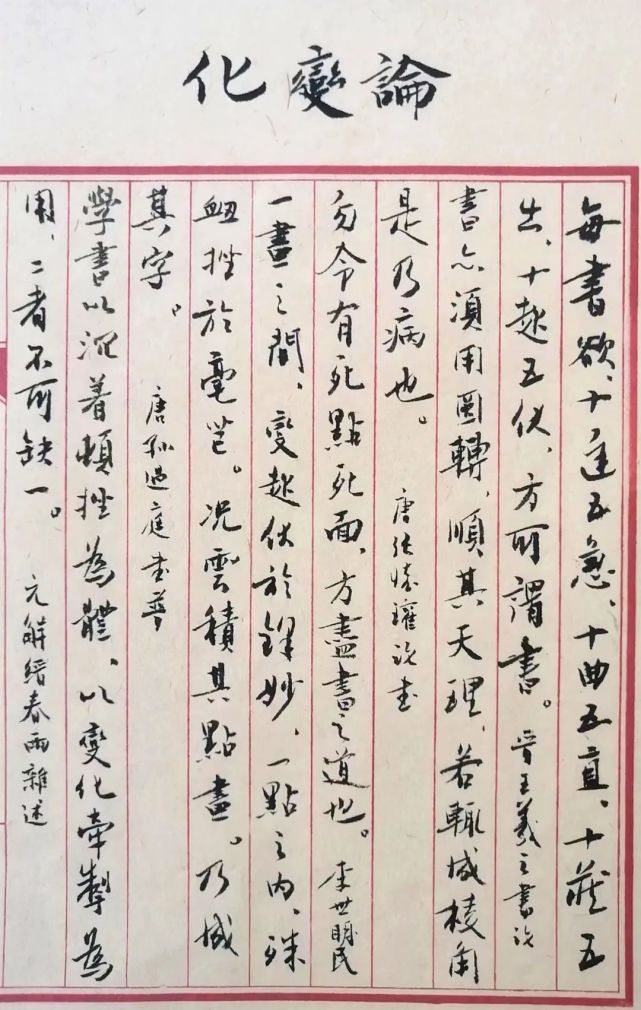 論變化
每書欲、十遲五急、十曲五直、十藏五
出、十起五伏、方可謂書。晉王羲之書論
書亦須用圓轉、順其天理、若輒成棱角
是乃病也。唐張懷瓘論書
勿令有死點死面、方盡書之道也。李世民
一畫之間、變起伏於鋒妙、一點之内、殊
衄挫於毫芒。况雲積其點畫。乃成
其字。唐孫過庭書譜
學書以沉着頓挫為體、以變化牽掣為
用、二者不可缺一。元解縉春雨雜述